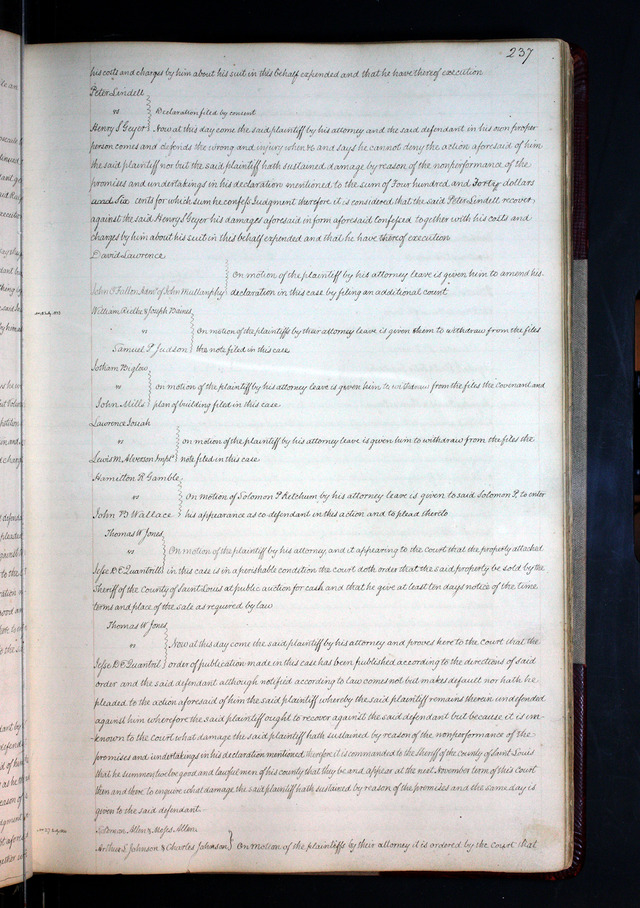 237
his costs and charges by him about his suit in this behalf expended and that he have thereof execution
Peter Lindell
vs
Declaration filed by consent
Henry S Geyer Now at this day come the said plaintiff by his attorney and the said defendant in his own proper
person comes and defends the wrong and injury when &c and says he cannot deny the action aforesaid of him
the said plaintiff nor but the said plaintiff hath sustained damage by reason of the nonperformance of the
promises and undertakings in his declaration mentioned to the sum of Four hundred and Forty dollars
and Six cents for which sum he confess Judgment therefore it is considered that the said Peter Lindell recover
against the said Henry S Geyer his damages aforesaid in form aforesaid confessed together with his costs and
charges by him about his suit in this behalf expended and that he have thereof execution
David Lawrence
On motion of the plaintiff by his attorney leave is given him to amend his
John O Fallon Admr of John Mullanphy declaration in this case by filing an additional count
William Risley & Joseph Baines
vs On motion of the plaintiffs by their attorney leave is given them to withdraw from the files
Samuel P Judson the note filed in this case
Jotham Biglow
vs on motion of the plaintiff by his attorney leave is given him to withdraw from the files the Covenant and
John Mills plan of building filed in this case
Lawrence
vs on motion of the plaintiff by his attorney leave is given him to withdraw from the files the
Lewis M Alverson note filed in this case
Hamilton R Gamble
vs On motion of Solomon P Ketchum by his attorney leave is given to said Solomon P. to enter
John B Wallace his appearance as co defendant in this action and to plead thereto
Thomas W Jones
vs On motion of the plaintiff by his attorney, and it appearing to the Court that the property attached
Jesse D E Quantrill in this case is in a perishable condition the court doth order that the said property be sold by the
Sheriff of the County of Saint Louis at public auction for cash and that he give at least ten days notice of the time
terms and place of the sale as required by law
Thomas W Jones
vs Now at this day come the said plaintiff by his attorney and proves here to the Court that the
Jesse D E Quantril order of publication made in this case has been published according to the directions of said
order and the said defendant although notified according to law comes not but makes default nor hath he
pleaded to the action aforesaid of him the said plaintiff whereby the said plaintiff remains therein undefended
against him wherefore the said plaintiff ought to recover against the said defendant but because it is un-
-known to the court what damage the said plaintiff hath sustained by reason of the nonperformance of the
promises and undertakings in his declaration mentioned therefore it is commanded to the Sheriff of the County of Saint Louis
that he summon twelve good and lawful men of his county that they be and appear at the next November term of this Court
then and there to enquire what damage the said plaintiff hath sustained by reason of the premises and the same day is
given to the said defendant
Solomon Allen & Moses Allen
Arthur L Johnson & Charles Johnson On motion of the plaintiffs by their attorney it is ordered by the Court that